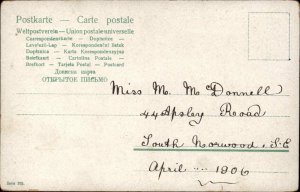 Postkarte — Carte postale
Weltpostverein — Union postale universelle
Correspondenzkarte — Dopisnice
Levelező-Lap — Korespondenční lístek
Dopisnica — Karta Korespondencyjna
Briefkaart — Cartolina Postale
Brefkort — Tarjeta Postal — Postcard
ОТКРЫТОЕ ПИСЬМО
Miss M. McDonnell
44 Apsley Road
South Norwood, S.E
April 1906